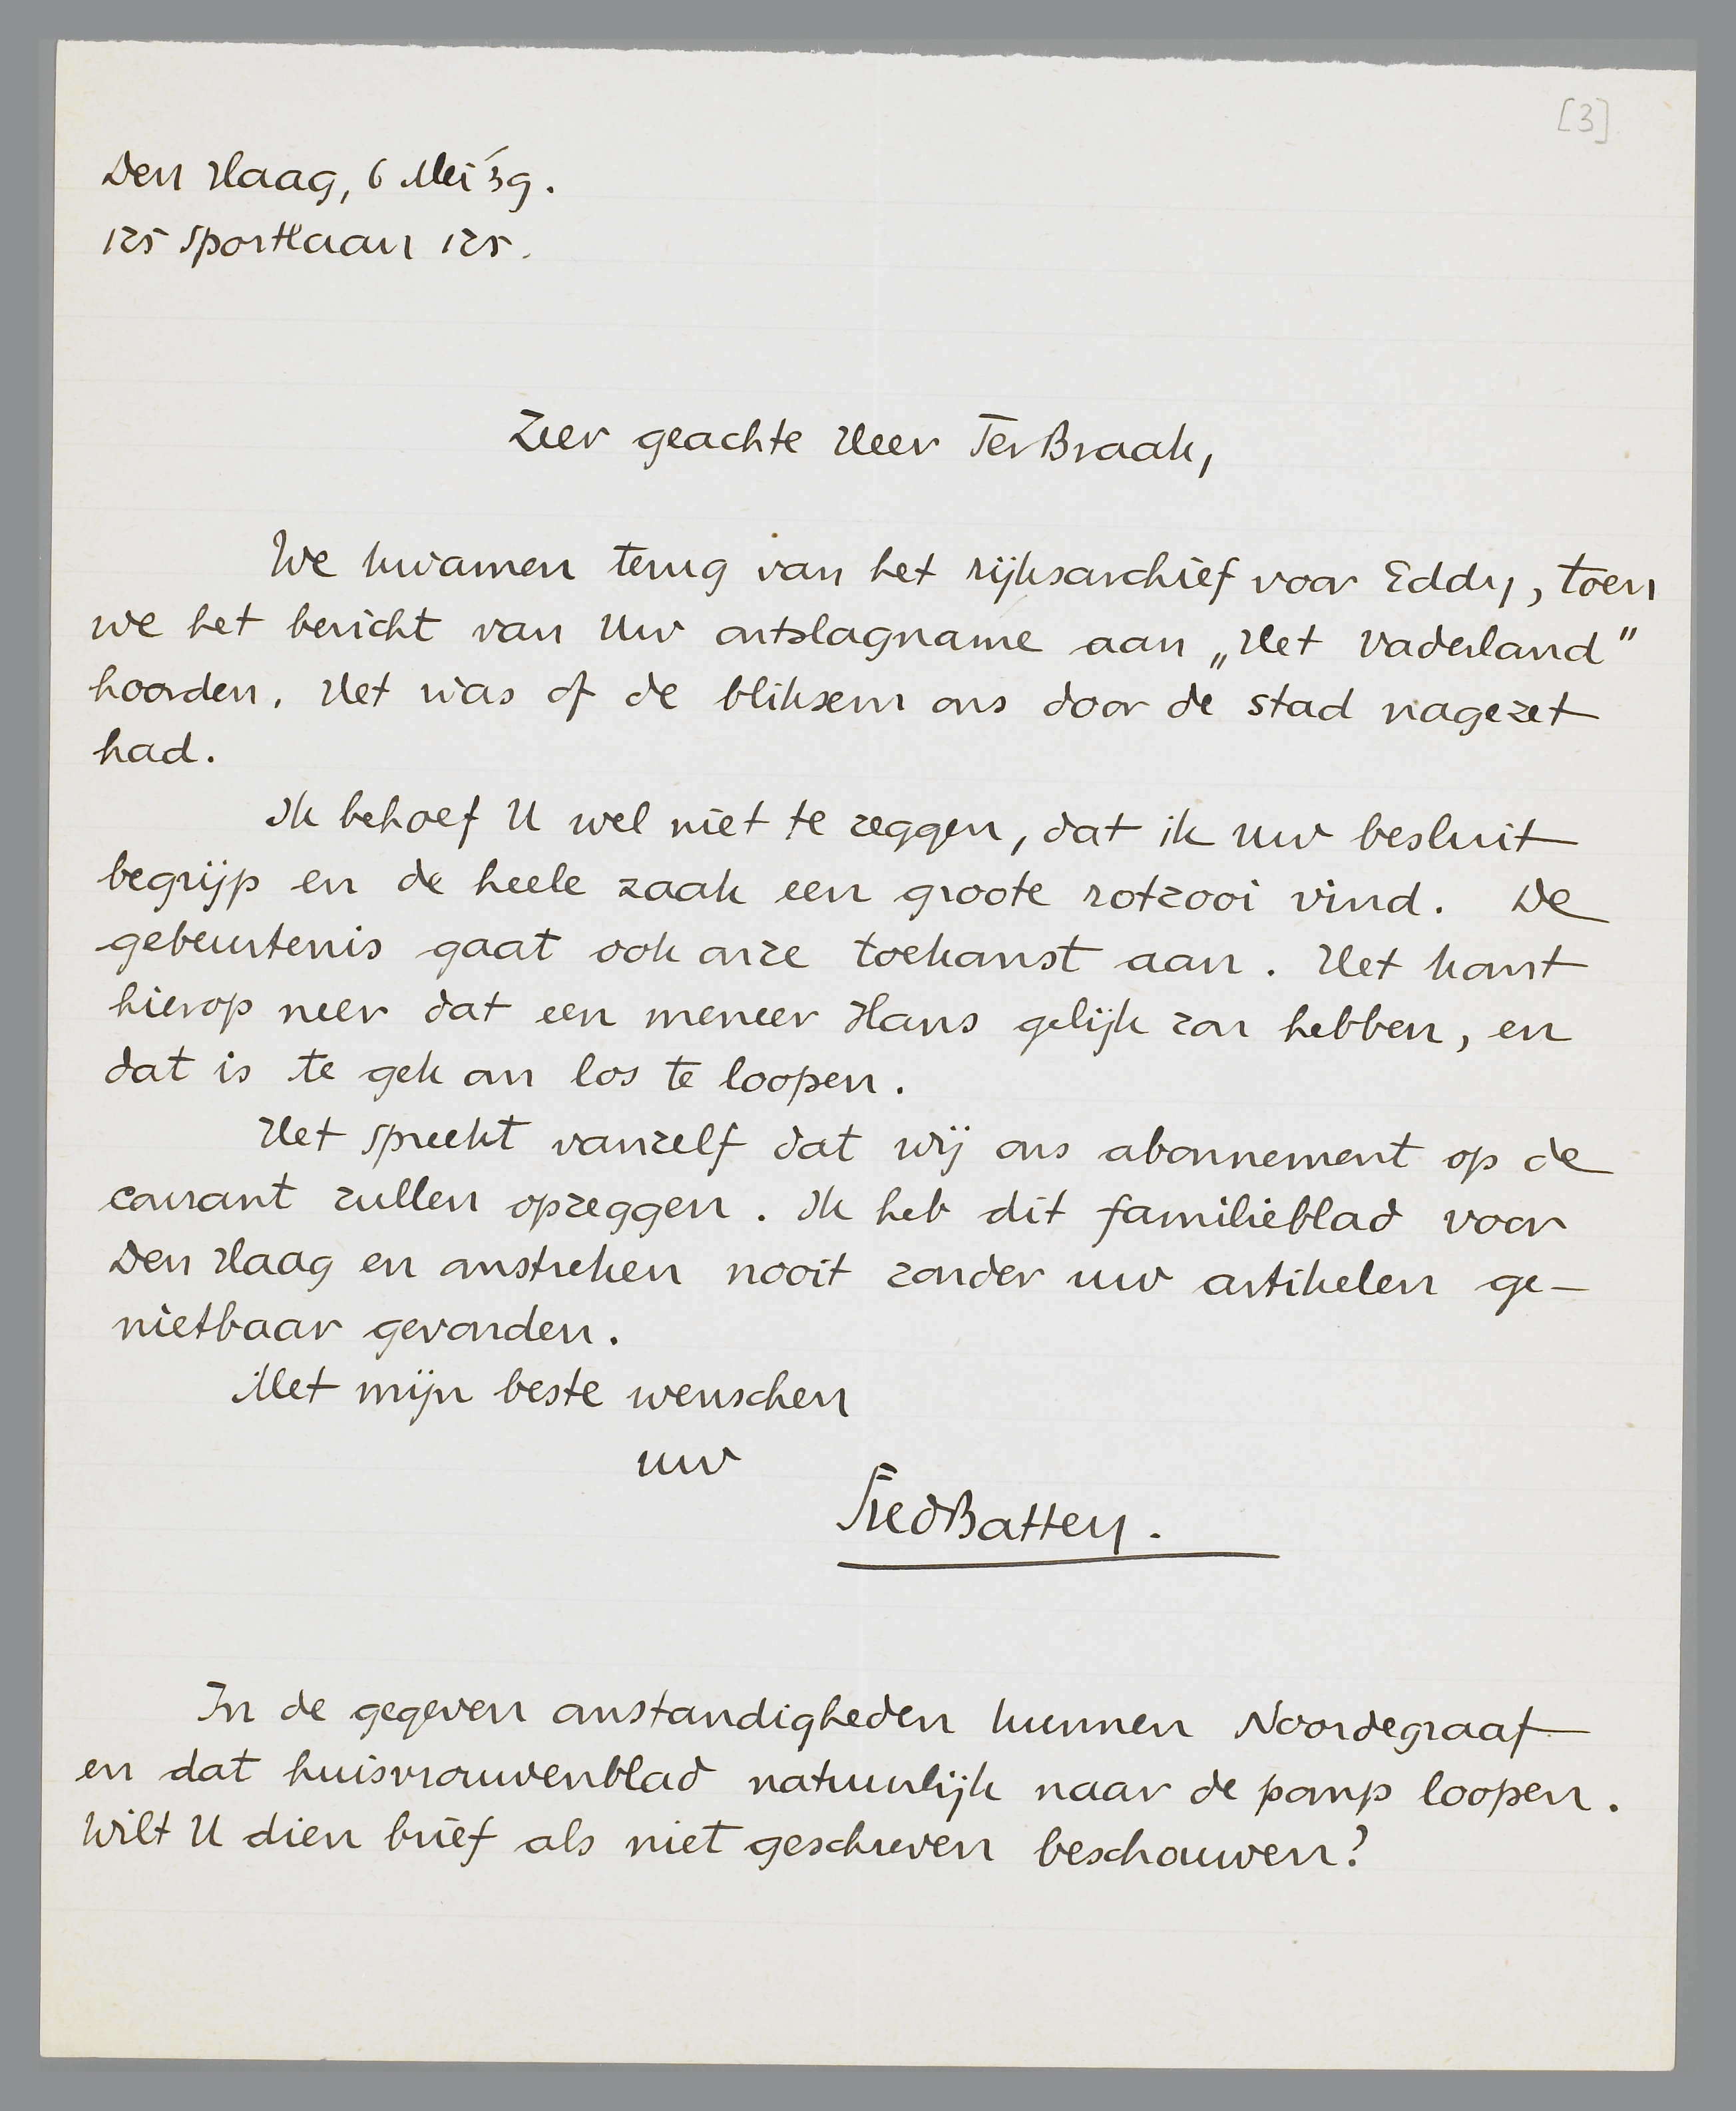 [3]
Den Haag, 6 Mei '39.
125 Sportlaan 125.
Zeer geachte Heer Ter Braak,
We kwamen terug van het rijksarchief voor Eddy, toen
we het bericht van Uw ontslagname aan „Het Vaderland”
hoorden. Het was of de bliksem ons door de stad nagezet
had.
Ik behoef U wel niet te zeggen, dat ik uw besluit
begrijp en de heele zaak een groote rotzooi vind. De
gebeurtenis gaat ook onze toekomst aan. Het komt
hierop neer dat een meneer Hans gelijk zou hebben, en
dat is te gek om los te loopen.
Het spreekt vanzelf dat wij ons abonnement op de
courant zullen opzeggen. Ik heb dit familieblad voor
Den Haag en omstreken nooit zonder uw artikelen ge-
nietbaar gevonden.
Met mijn beste wenschen
uw
Fred Batten.
In de gegeven omstandigheden kunnen Noordegraaf
en dat huisvrouwenblad natuurlijk naar de pomp loopen.
Wilt U dien brief als niet geschreven beschouwen?